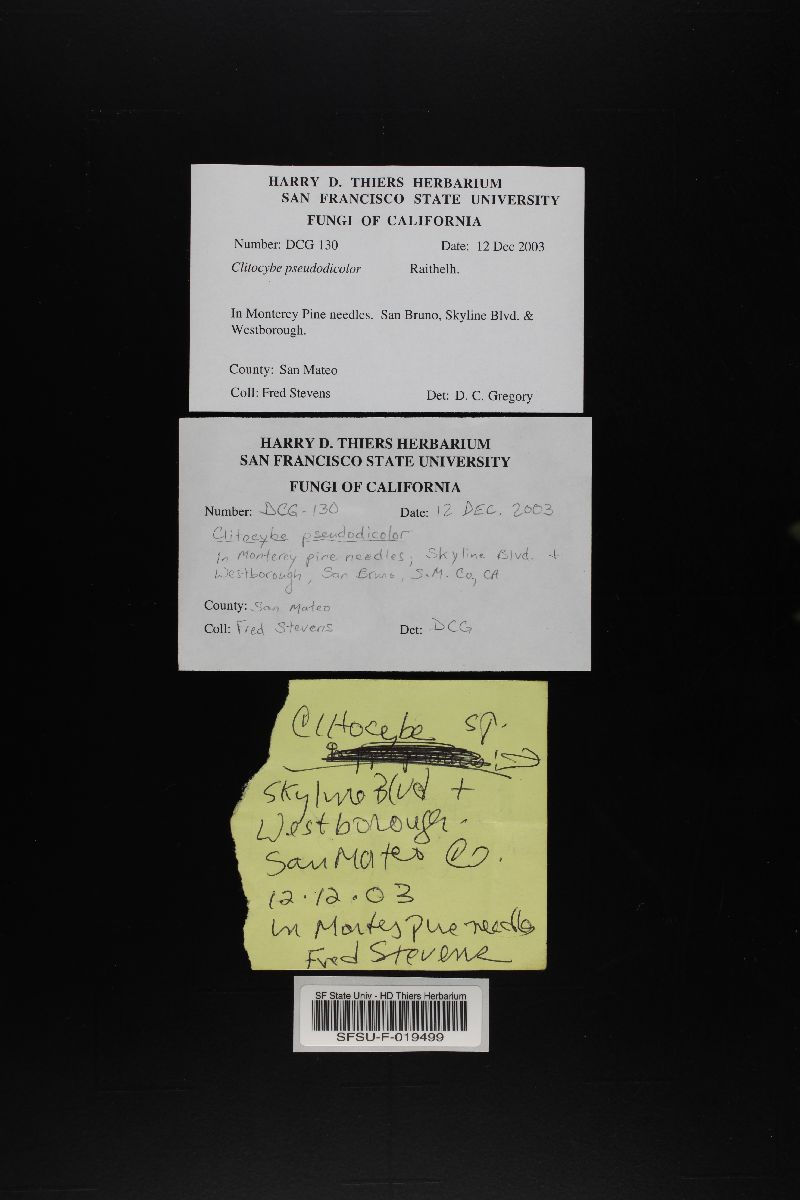 HARRY D. THIERS HERBARIUM
SAN FRANCISCO STATE UNIVERSITY
FUNGI OF CALIFORNIA
Number: DCG 130 Date: 12 Dec 2003
Clitocybe pseudodicolor Raithelh.
In Monterey Pine needles. San Bruno, Skyline Blvd. &
Westborough.
County: San Mateo
Coll: Fred Stevens Det: D. C. Gregory
HARRY D. THIERS HERBARIUM
SAN FRANCISCO STATE UNIVERSITY
FUNGI OF CALIFORNIA
Number: DCG-130 Date: 12 DEC. 2003
Clitocybe pseudodicolor
In Monterey pine needles; Skyline Blvd. +
Westborough, San Bruno, S.M. Co, CA
County: San Mateo
Coll: Fred Stevens Det: DCG
Clitocybe sp.
Skyline Blvd +
Westborough.
San Mateo Co.
12.12.03
in pine needles
Fred Stevens
SF State Univ - HD Thiers Herbarium
SFSU-F-019499